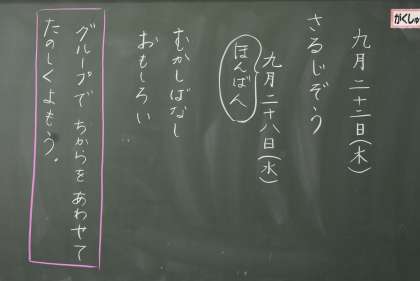 がくしゅ
九月二十二日(木)
さるじぞう
九月二十八日(水)
ほんばん
むかしばなし
おもしろい
グループで ちからを あわせて
たのしくよもう。